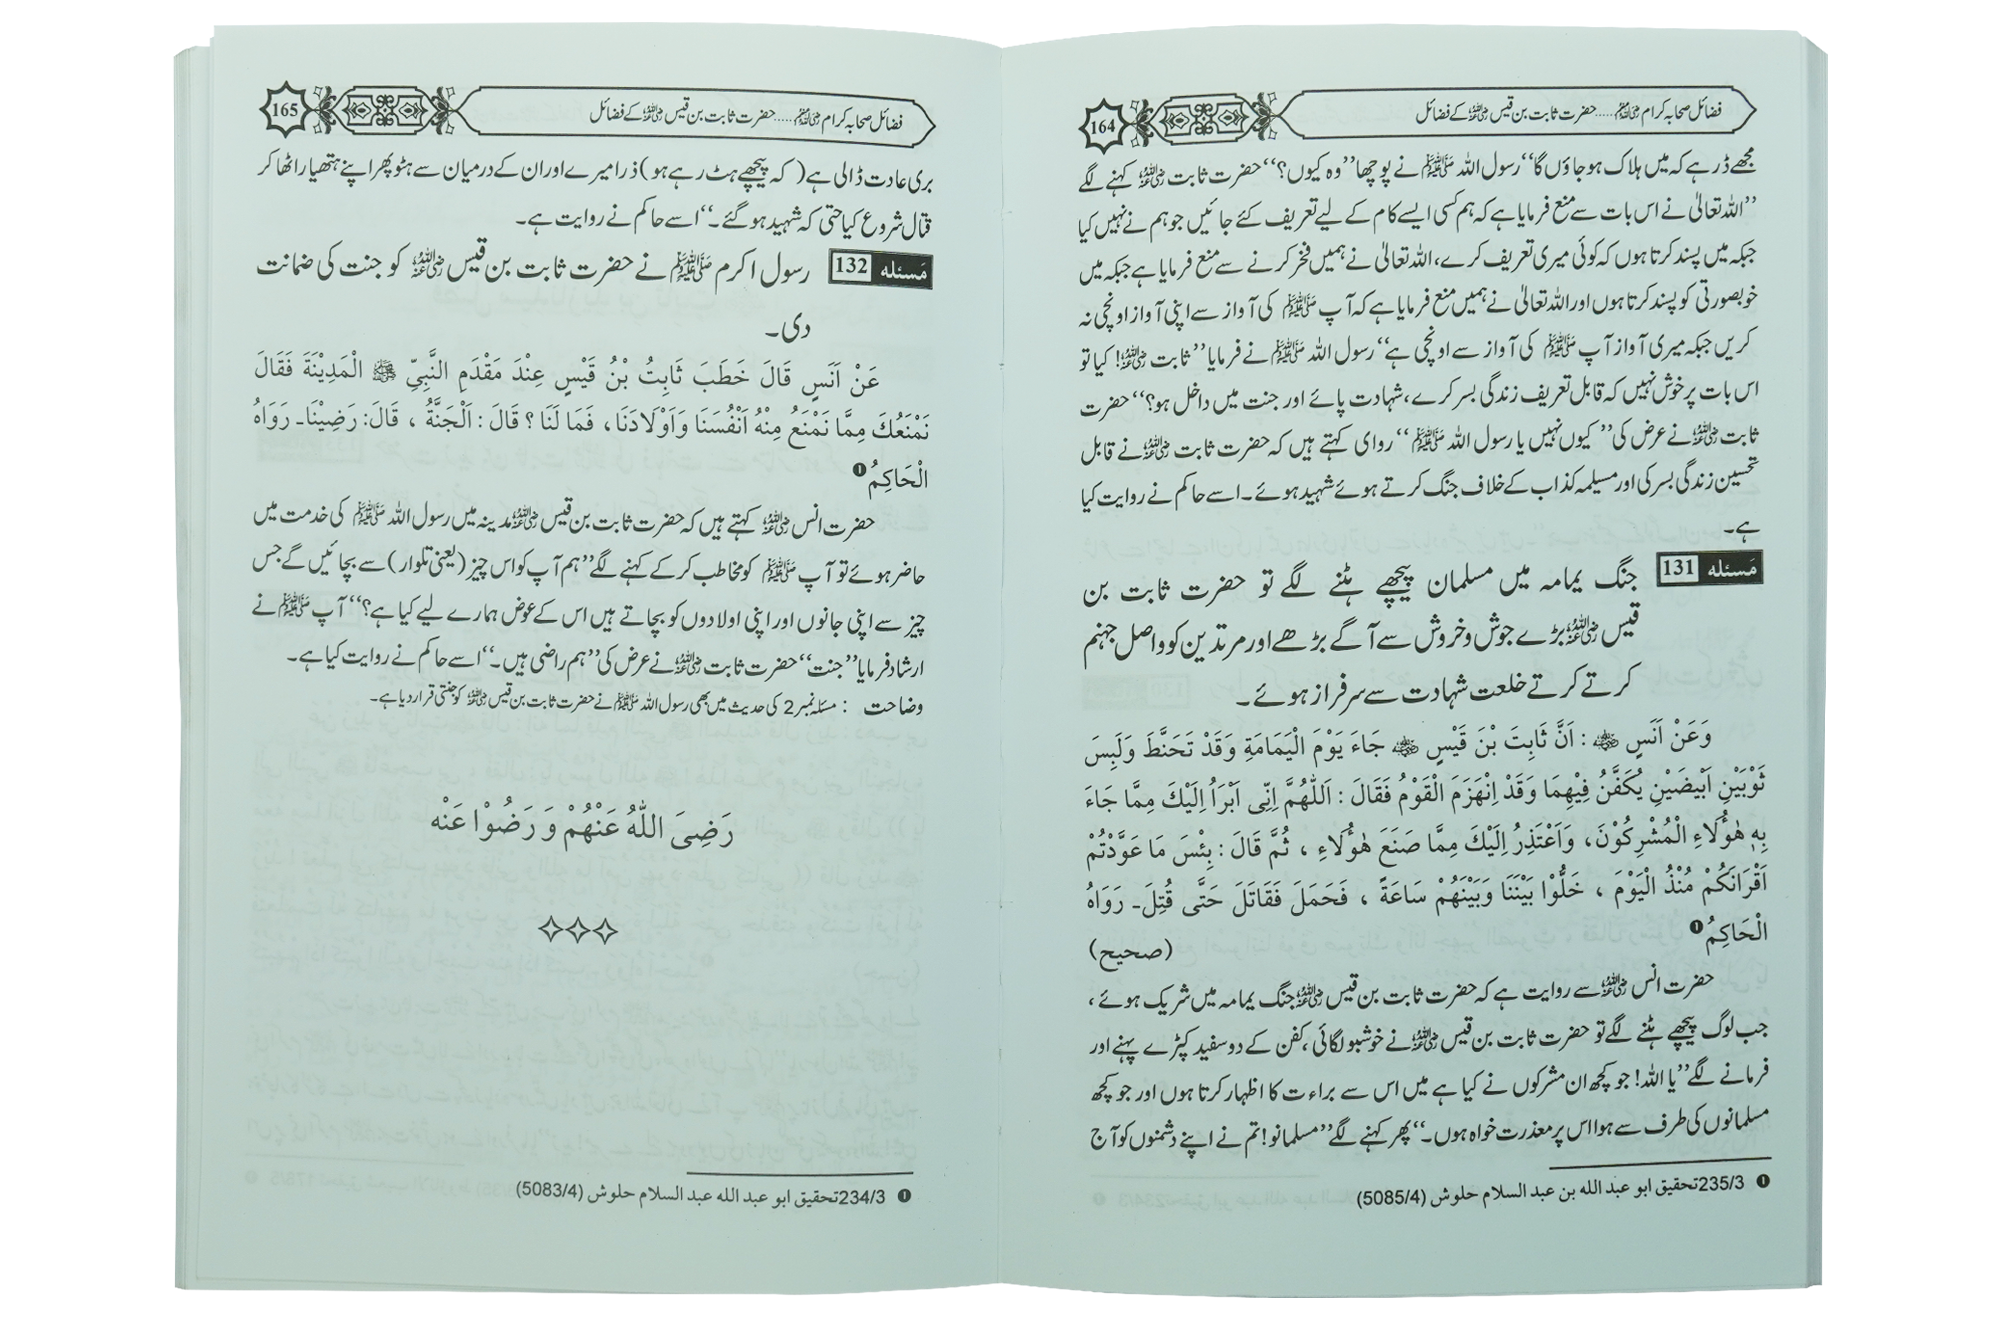 فضائل صحابہ کرام ﷢..... حضرت ثابت بن قیس ﷜ کے فضائل
164
مجھے ڈر ہے کہ میں ہلاک ہو جاؤں گا‘‘ رسول اللہ ﷺ نے پوچھا ’’وہ کیوں؟‘‘ حضرت ثابت ﷜ کہنے لگے
’’اللہ تعالیٰ نے اس بات سے منع فرمایا ہے کہ ہم کسی ایسے کام کے لیے تعریف کئے جائیں جو ہم نے نہیں کیا
جبکہ میں پسند کرتا ہوں کہ کوئی میری تعریف کرے، اللہ تعالیٰ نے ہمیں فخر کرنے سے منع فرمایا ہے جبکہ میں
خوبصورتی کو پسند کرتا ہوں اور اللہ تعالیٰ نے ہمیں منع فرمایا ہے کہ آپ ﷺ کی آواز سے اپنی آواز اونچی نہ
کریں جبکہ میری آواز آپ ﷺ کی آواز سے اونچی ہے‘‘ رسول اللہ ﷺ نے فرمایا ’’ثابت ﷜! کیا تو
اس بات پر خوش نہیں کہ قابل تعریف زندگی بسر کرے، شہادت پائے اور جنت میں داخل ہو؟‘‘ حضرت
ثابت ﷜ نے عرض کی ’’کیوں نہیں یا رسول اللہ ﷺ‘‘ روای کہتے ہیں کہ حضرت ثابت ﷜ نے قابل
تحسین زندگی بسر کی اور مسیلمہ کذاب کے خلاف جنگ کرتے ہوئے شہید ہوئے۔ اسے حاکم نے روایت کیا
ہے۔
مَسئله 131 جنگ یمامہ میں مسلمان پیچھے ہٹنے لگے تو حضرت ثابت بن
قیس ﷜ بڑے جوش و خروش سے آگے بڑھے اور مرتدین کو واصل جہنم
کرتے کرتے خلعت شہادت سے سرفراز ہوئے۔
وَعَنْ اَنَسٍ ﷜ : اَنَّ ثَابِتَ بْنَ قَيْسٍ ﷜ جَاءَ يَوْمَ الْيَمَامَةِ وَقَدْ تَحَنَّطَ وَلَبِسَ
ثَوْبَيْنِ اَبْيَضَيْنِ يُكَفَّنُ فِيْهِمَا وَقَدْ اِنْهَزَمَ الْقَوْمُ فَقَالَ : اَللّٰهُمَّ اِنِّى اَبْرَأُ اِلَيْكَ مِمَّا جَاءَ
بِهٖ هٰؤُلَاءِ الْمُشْرِكُوْنَ، وَاَعْتَذِرُ اِلَيْكَ مِمَّا صَنَعَ هٰؤُلَاءِ ، ثُمَّ قَالَ : بِئْسَ مَا عَوَّدْتُمْ
اَقْرَانَكُمْ مُنْذُ الْيَوْمَ ، خَلُّوْا بَيْنَنَا وَبَيْنَهُمْ سَاعَةً ، فَحَمَلَ فَقَاتَلَ حَتَّى قُتِلَ۔ رَوَاهُ
الْحَاكِمُ ❶ (صحيح)
حضرت انس ﷜ سے روایت ہے کہ حضرت ثابت بن قیس ﷜ جنگ یمامہ میں شریک ہوئے،
جب لوگ پیچھے ہٹنے لگے تو حضرت ثابت بن قیس ﷜ نے خوشبو لگائی، کفن کے دو سفید کپڑے پہنے اور
فرمانے لگے ’’یا اللہ! جو کچھ ان مشرکوں نے کیا ہے میں اس سے براءت کا اظہار کرتا ہوں اور جو کچھ
مسلمانوں کی طرف سے ہوا اس پر معذرت خواہ ہوں۔‘‘ پھر کہنے لگے ’’مسلمانو! تم نے اپنے دشمنوں کو آج
❶ 235/3 تحقیق ابو عبد الله بن عبد السلام حلوش (5085/4)
فضائل صحابہ کرام ﷢..... حضرت ثابت بن قیس ﷜ کے فضائل
165
بری عادت ڈالی ہے (کہ پیچھے ہٹ رہے ہو) ذرا میرے اور ان کے درمیان سے ہٹو پھر اپنے ہتھیار اٹھا کر
قتال شروع کیا حتی کہ شہید ہو گئے۔‘‘ اسے حاکم نے روایت ہے۔
مَسئله 132 رسول اکرم ﷺ نے حضرت ثابت بن قیس ﷜ کو جنت کی ضمانت
دی۔
عَنْ اَنَسٍ قَالَ خَطَبَ ثَابِتُ بْنُ قَيْسٍ عِنْدَ مَقْدَمِ النَّبِيِّ ﷺ الْمَدِيْنَةَ فَقَالَ
نَمْنَعُكَ مِمَّا نَمْنَعُ مِنْهُ اَنْفُسَنَا وَاَوْلَادَنَا، فَمَا لَنَا ؟ قَالَ : اَلْجَنَّةُ ، قَالَ: رَضِيْنَا۔ رَوَاهُ
الْحَاكِمُ ❶
حضرت انس ﷜ کہتے ہیں کہ حضرت ثابت بن قیس ﷜ مدینہ میں رسول اللہ ﷺ کی خدمت میں
حاضر ہوئے تو آپ ﷺ کو مخاطب کر کے کہنے لگے ’’ہم آپ کو اس چیز (یعنی تلوار) سے بچائیں گے جس
چیز سے اپنی جانوں اور اپنی اولادوں کو بچاتے ہیں اس کے عوض ہمارے لیے کیا ہے؟‘‘ آپ ﷺ نے
ارشاد فرمایا ’’جنت‘‘ حضرت ثابت ﷜ نے عرض کی ’’ہم راضی ہیں۔‘‘ اسے حاکم نے روایت کیا ہے۔
وضاحت : مسئلہ نمبر 2 کی حدیث میں بھی رسول اللہ ﷺ نے حضرت ثابت بن قیس ﷜ کو جنتی قرار دیا ہے۔
رَضِىَ اللّٰهُ عَنْهُمْ وَ رَضُوْا عَنْه
❶ 234/3 تحقیق ابو عبد الله عبد السلام حلوش (5083/4)